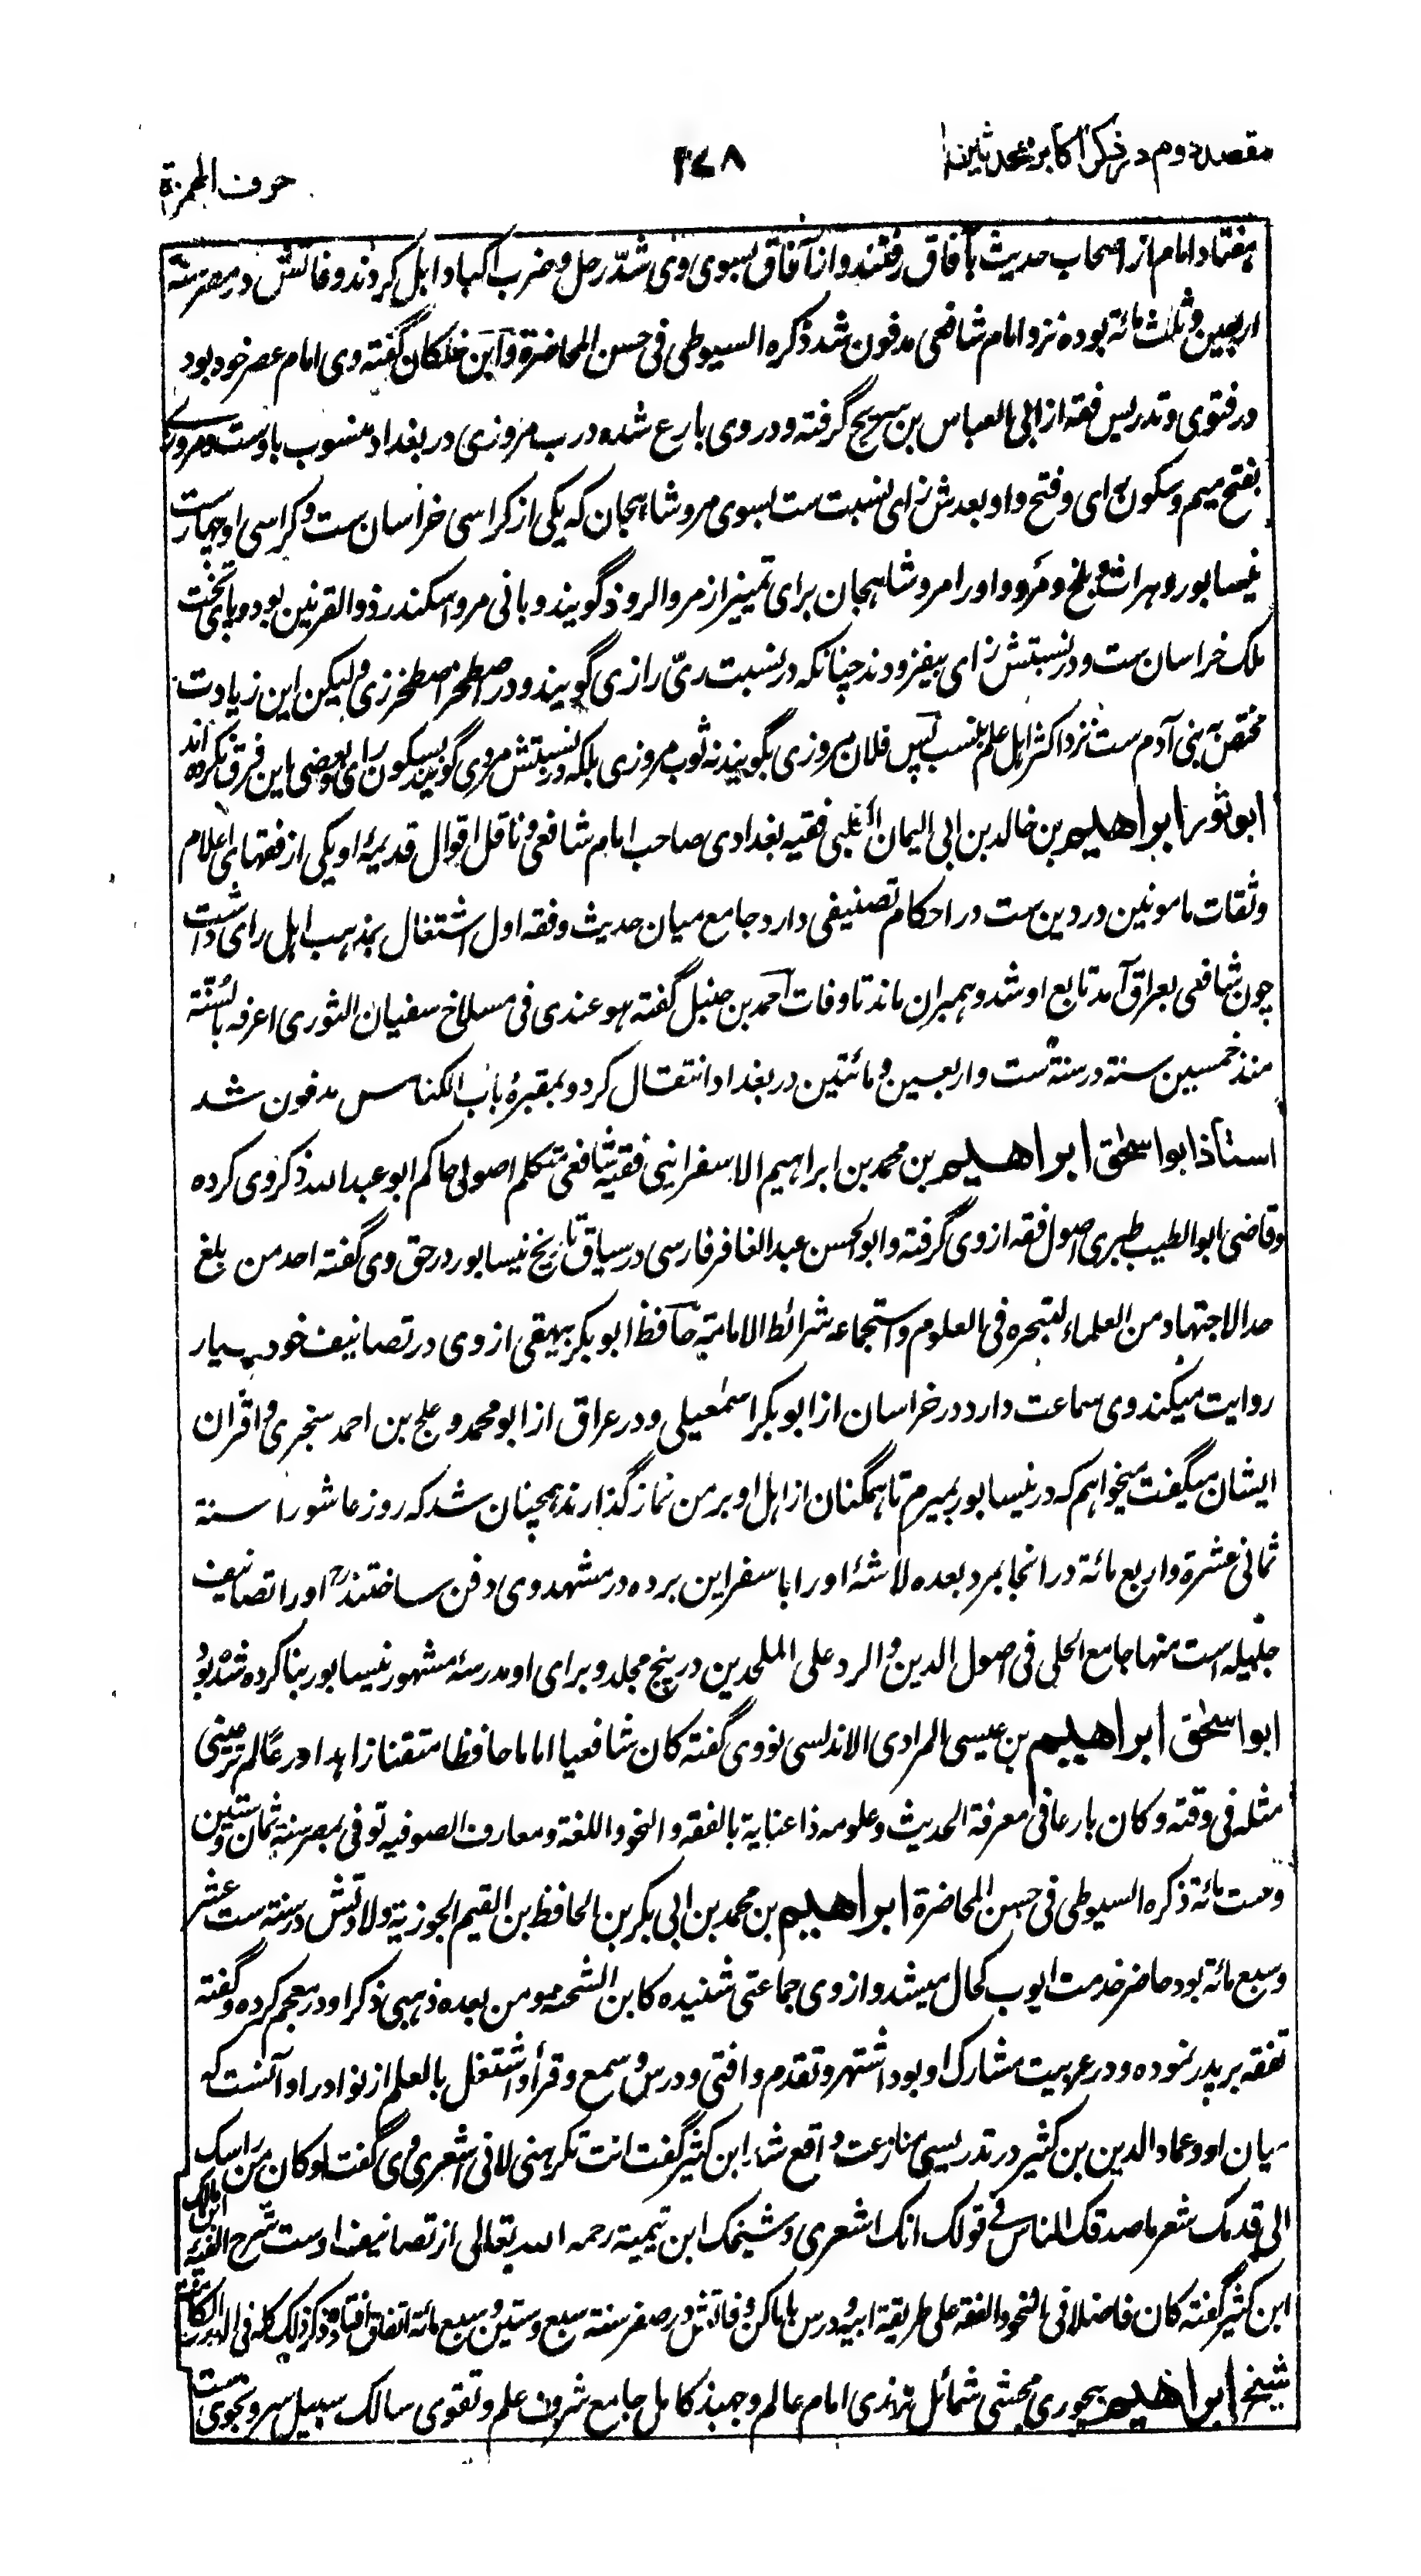 مقصد دوم در ذکر اکابر محدثین
۲۷۸
حرف الهمزة
هفتاد امام از اصحاب حدیث بآفاق رفتند و از آفاق بسوی وی شدّ رحل و ضرب اکباد ابل کردند وفاتش در مصر سنة
اربعین و ثلث مائة بوده نزد امام شافعی مدفون شد ذکره السیوطی فی حسن المحاضرة و ابن خلکان گفته وی امام عصر خود بود
در فتوی و تدریس فقه از ابی العباس بن سریج گرفته و در وی بارع شده درب مروزی در بغداد منسوب باوست و مروزی
بفتح میم و سکون رای و فتح واو بعدش زای نسبت ست بسوی مرو شاهجان که یکی از کراسی خراسان ست و کراسی او چهارست
نیسابور و هرات و بلخ و مرو و او را مرو شاهجان برای تمییز از مرو الروذ گویند و بانی مرو اسکندر ذوالقرنین بود و پای تخت
ملک خراسان ست و در نسبتش زای بیفزودند چنانکه در نسبت ریّ رازی گویند و در اصطخر اصطخرزی و لیکن این زیادت
مختص به بنی آدم ست نزد اکثر اهل علم بنسب پس فلان مروزی بگویند نه ثوب مروزی بلکه در نسبتش مروی گویند بسکون رای و بعضی این فرق نکرده اند
ابو ثور ابراهیم بن خالد بن ابی الیمان الکلبی فقیه بغدادی صاحب امام شافعی و ناقل اقوال قدیمهٔ او یکی از فقهای اعلام
و ثقات مامونین در دین ست در احکام تصنیفی دارد جامع میان حدیث و فقه اول اشتغال بمذهب اهل رای داشت
چون شافعی بعراق آمد تابع او شد و همبران ماند تا وفات احمد بن حنبل گفته هو عندی فی مسلاخ سفیان الثوری اعرفه بالسنّة
منذ خمسین سنة در سنة ست و اربعین و مائتین در بغداد انتقال کرد و بمقبرهٔ باب الکناس مدفون شد
استاذ ابو اسحٰق ابراهیم بن محمد بن ابراهیم الاسفراینی فقیه شافعی متکلم اصولی حاکم ابو عبد الله ذکر وی کرده
و قاضی ابو الطیب طبری اصول فقه از وی گرفته و ابو الحسن عبد الغافر فارسی در سیاق تاریخ نیسابور در حق وی گفته احد من بلغ
حد الاجتهاد من العلماء لتبحره فی العلوم و استجماعه شرائط الامامة حافظ ابو بکر بیهقی از وی در تصانیف خود بسیار
روایت میکند وی سماعت دارد در خراسان از ابو بکر اسمٰعیلی و در عراق از ابو محمد دعلج بن احمد سنجری و اقران
ایشان میگفت میخواهم که در نیسابور بمیرم تا همگنان از اهل او بر من نماز گذارند همچنان شد که روز عاشورا سنة
ثمانی عشرة و اربع مائة در انجا بمرد بعده لاشهٔ او را باسفراین برده در مشهد وی دفن ساختند رح او را تصانیف
جلیله است منها جامع الحلی فی اصول الدین و الرد علی الملحدین در پنج مجلد و برای او مدرسهٔ مشهور نیسابور بنا کرده شده بود
ابو اسحٰق ابراهیم بن عیسی المرادی الاندلسی نووی گفته کان شافعیا اماما حافظا متقنا زاهدا ورعا لم تر عینی
مثله فی وقته و کان بارعا فی معرفة الحدیث و علومه ذا عنایة بالفقه و النحو و اللغة و معارف الصوفیه توفی بمصر سنة ثمان و ستین
و ست مائة ذکره السیوطی فی حسن المحاضرة ابراهیم بن محمد بن ابی بکر بن الحافظ بن القیم الجوزیة ولادتش در سنة ست عشر
و سبع مائة بود حاضر خدمت ایوب کحال میشد و از وی جماعتی شنیده کابن الشحنه و من بعده ذهبی ذکر او در معجم کرده و گفته
تفقه بر پدر نموده و در عربیت مشارک او بود اشتهر و تقدم و افتی و درس و سمع و قرأ و اشتغل بالعلم از نوادر او آنست که
میان او و عماد الدین بن کثیر در تدریسی منازعت واقع شد ابن کثیر گفت انت تکرهنی لانی اشعری وی گفت لو کان من راسک
الی قدمک شعر ما صدقک الناس فی قولک انک اشعری و شیخک ابن تیمیة رحمه الله تعالی از تصانیف اوست شرح الفیهٔ ابن مالک
ابن کثیر گفته کان فاضلا فی النحو و الفقه علی طریقة ابیه و درس باماکن و فاتش در صفر سنة سبع و ستین و سبع مائة اتفاق افتاد ذکر ذلک کله فی الدرر الکامنة
شیخ ابراهیم بیجوری محشی شمائل ترمذی امام عالم و جهبذ کامل جامع شرف علم و تقوی سالک سبیل سر و نجوی ست